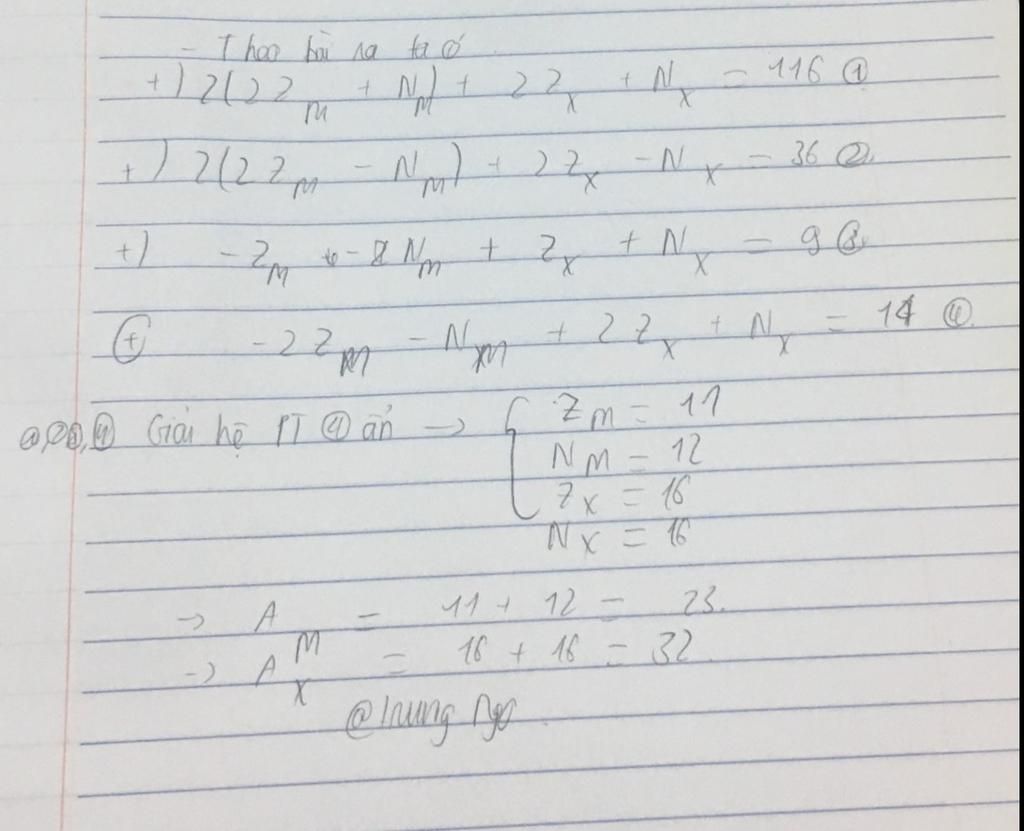 - Theo bài ra ta có
+) 2(2Z_M + N_M) + 2Z_X + N_X = 116 ①
+) 2(2Z_M - N_M) + 2Z_X - N_X = 36 ②
+) - Z_M - N_M + Z_X + N_X = 9 ③
(+) - 2Z_M - N_M + 2Z_X + N_X = 14 ④
④ Giải hệ PT ④ ẩn → { Z_M = 11
N_M = 12
Z_X = 16
N_X = 16
→ A_M = 11 + 12 = 23.
→ A_X = 16 + 16 = 32.
@Trung Ngo